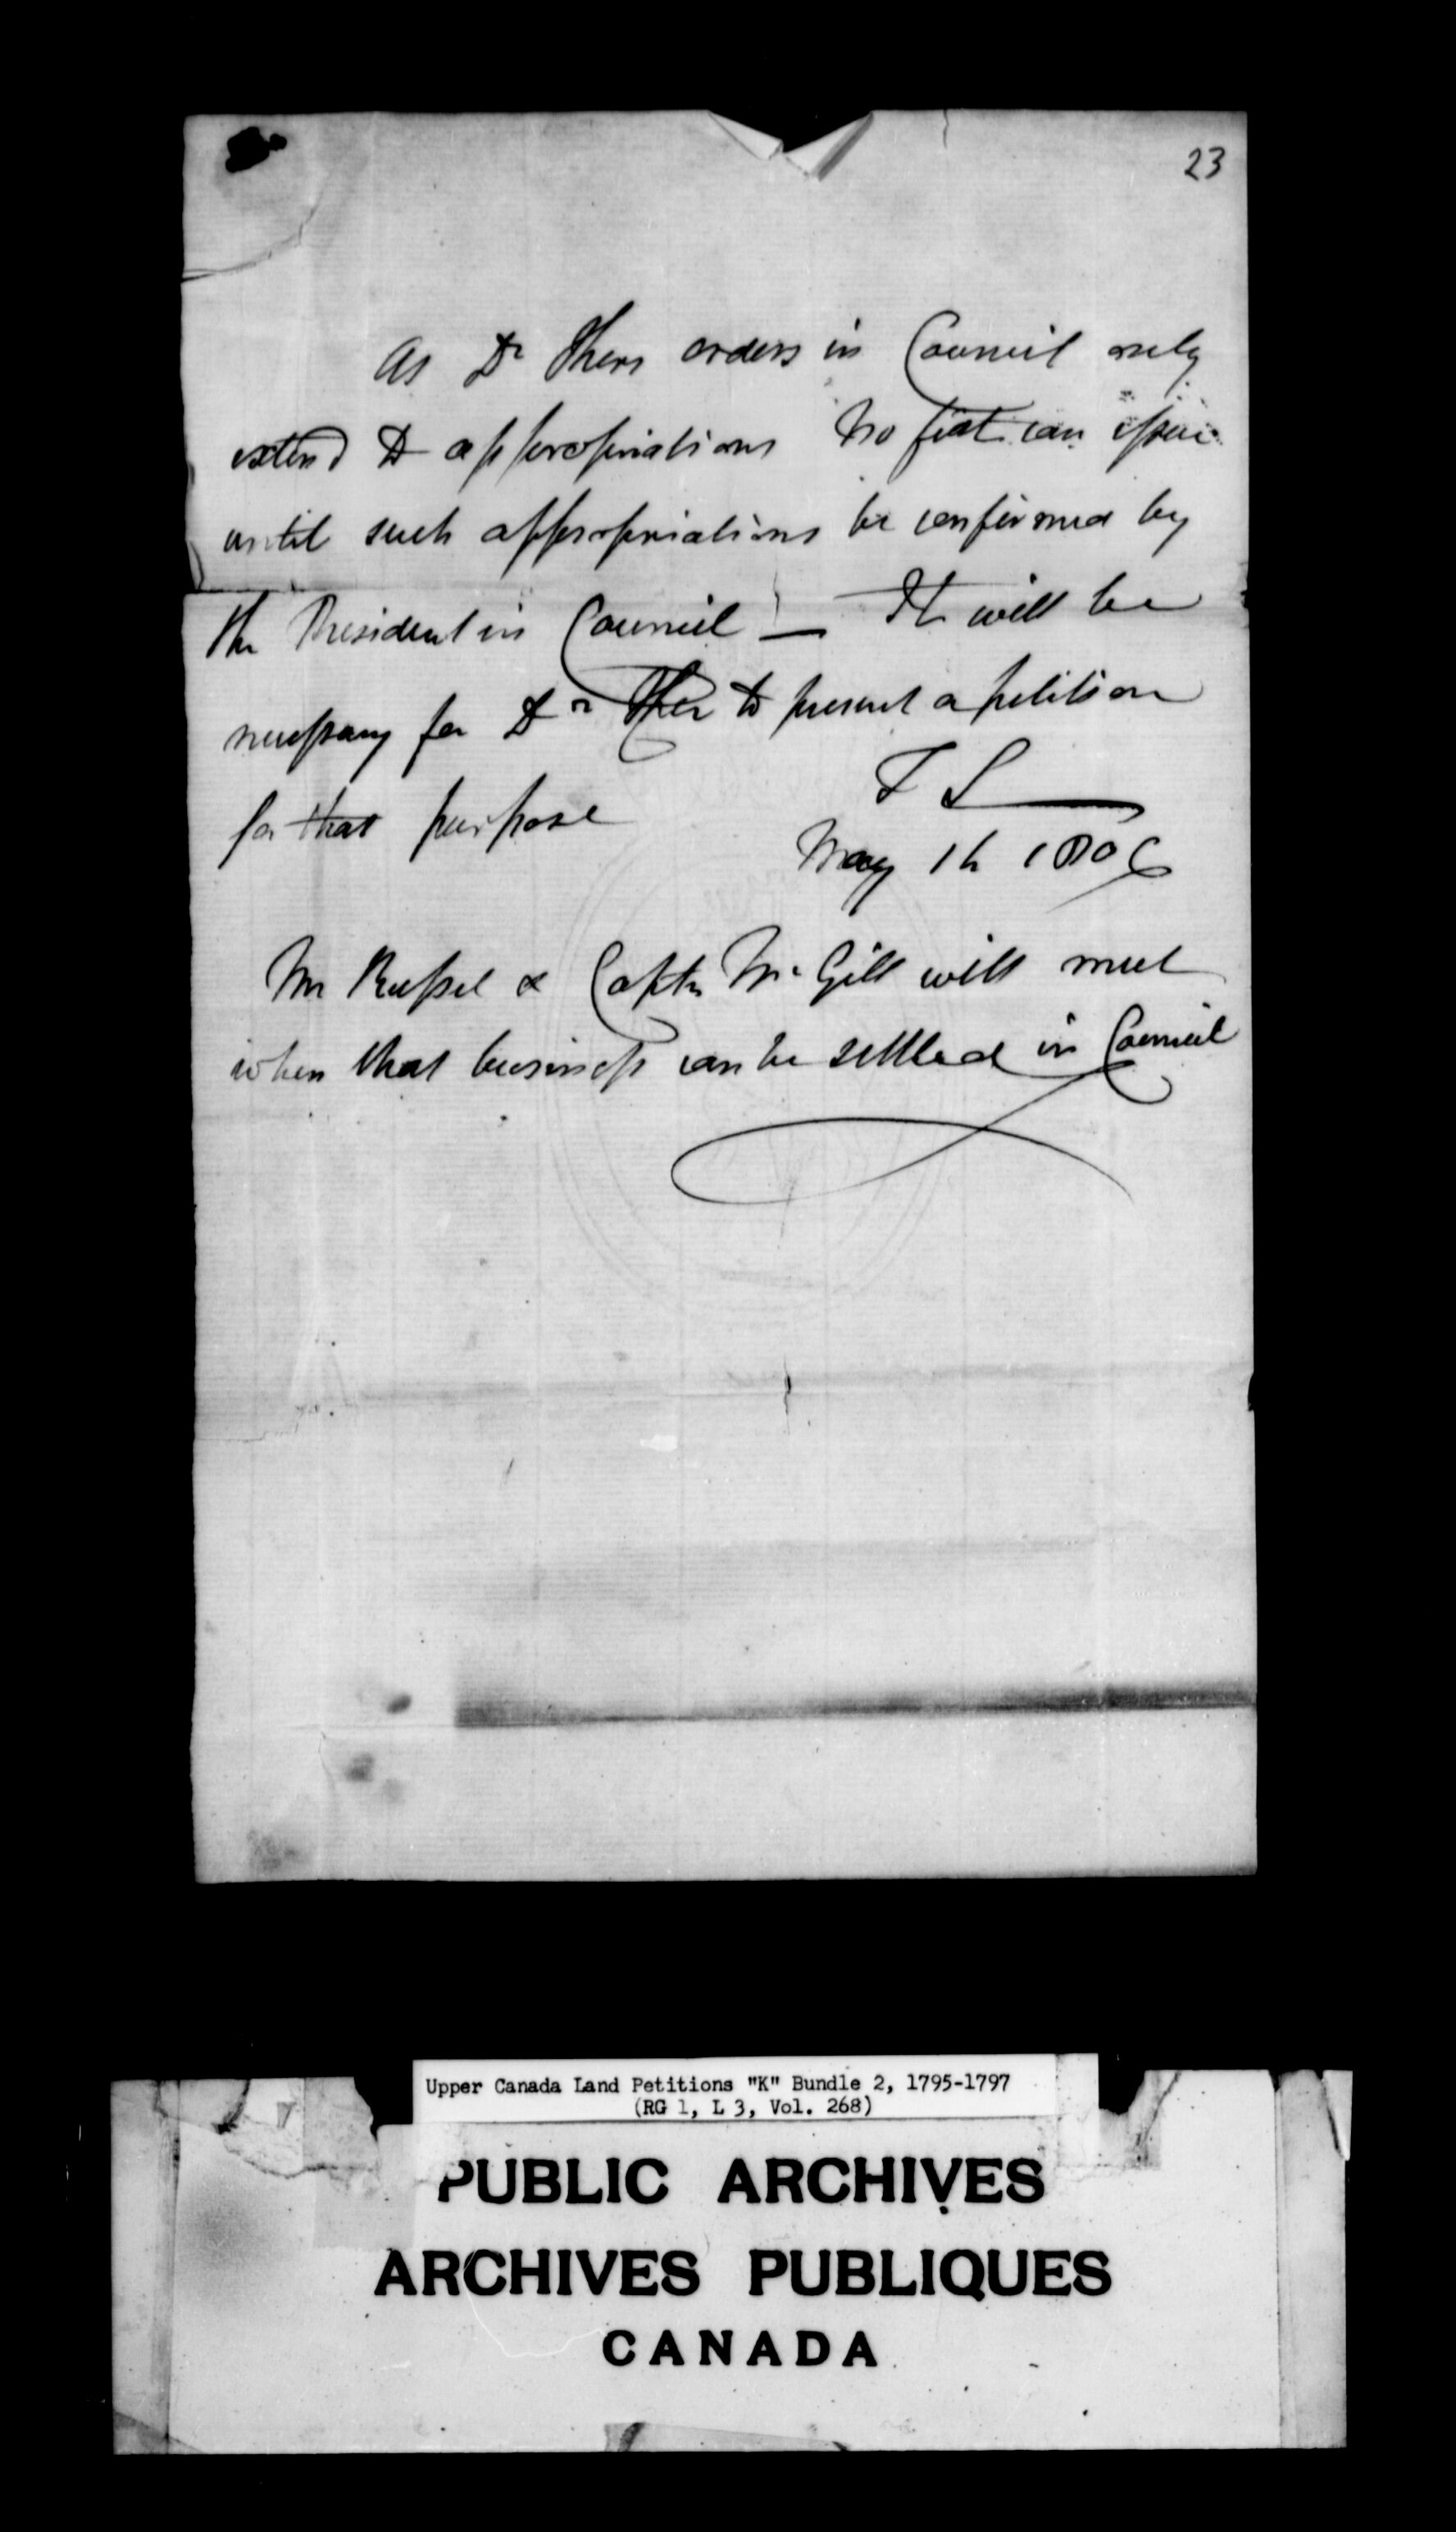 23
As Dr Kerrs orders in Council only
extend to appropriations No fiat can issue
until such appropriations be confirmed by
the President in Council — It will be
necessary for Dr Kerr to present a petition
for that purpose
T S
May 16 1806
Mr Russel & Captn McGill will meet
when that business can be settled in Council
Upper Canada Land Petitions "K" Bundle 2, 1795-1797
(RG 1, L 3, Vol. 268)
PUBLIC ARCHIVES
ARCHIVES PUBLIQUES
CANADA